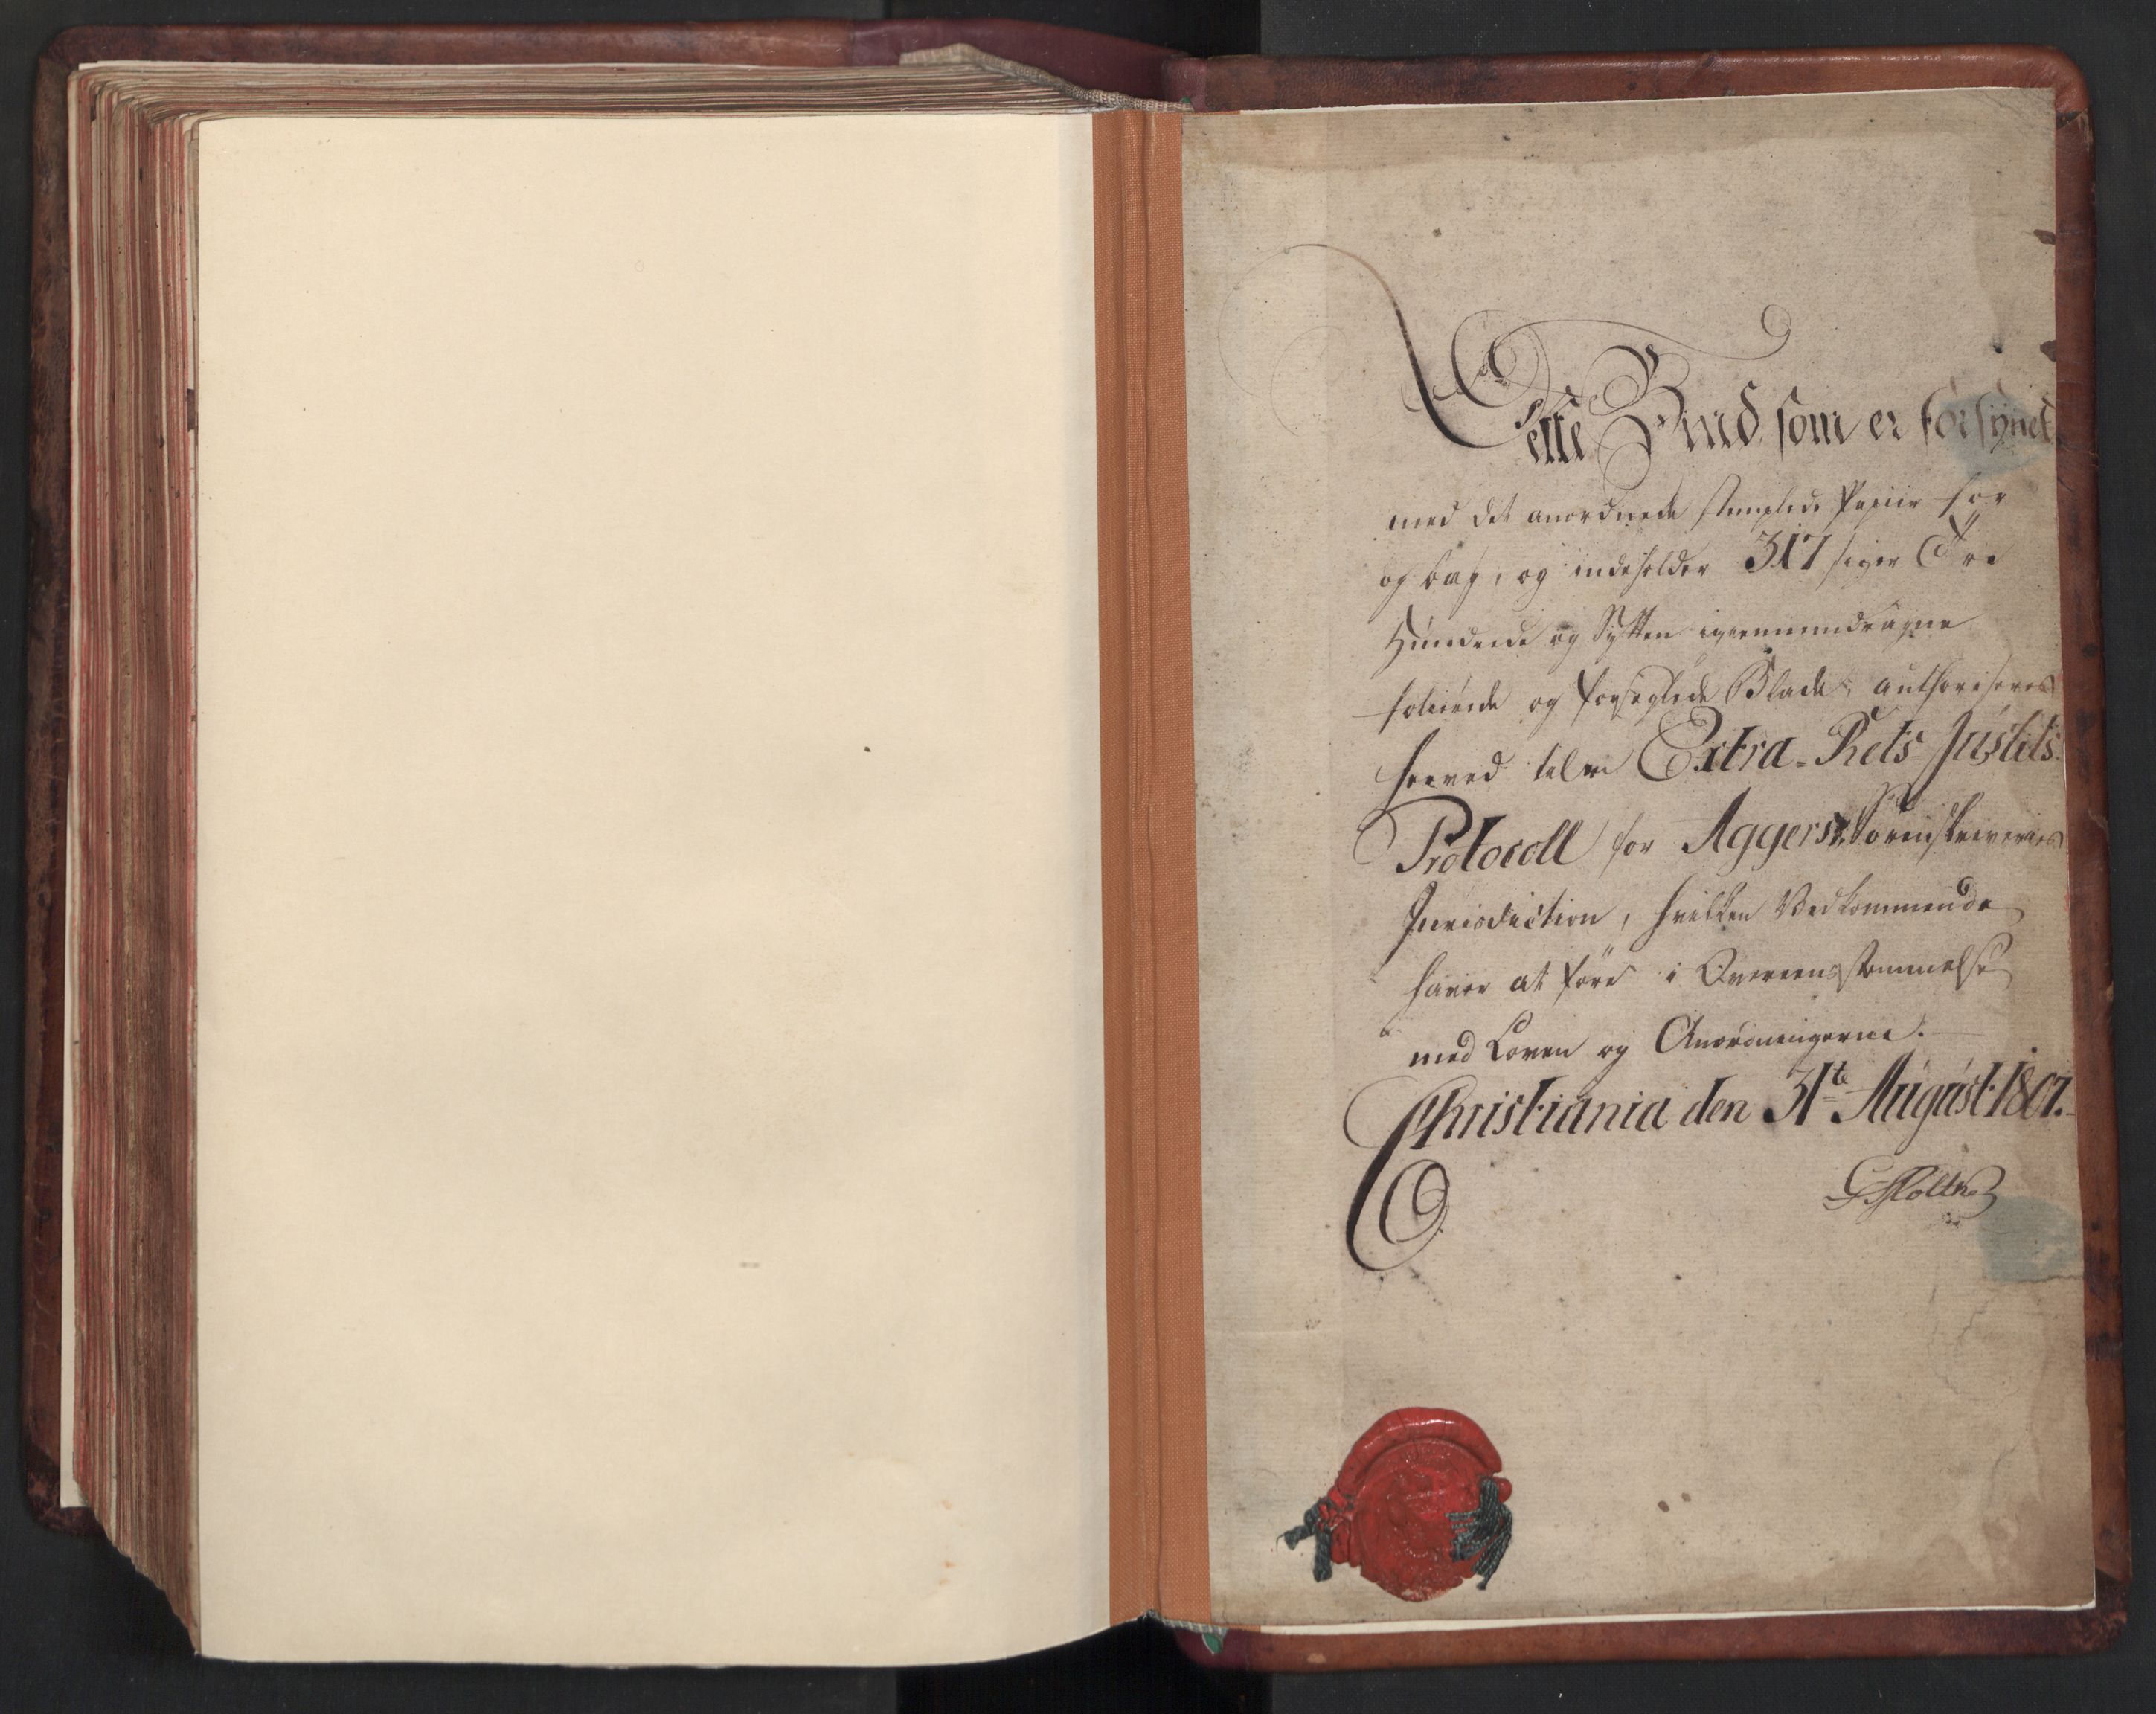 Dette Bind som er forsynet
med det anordnede stemplede Papiir for
og bag, og indeholder 317 siger Tre
Hundrede og Sytten igiennemdragne
folierede og forseglede Blade, authoriseres
herved til en Extra-Rets Justits
Protocoll for Aggers Sorenskriveries
Jurisdiction, hvilken Vedkommende
haver at føre i Overeensstemmelse
med Loven og Anordningerne.
Christiania den 31te August 1807.
G. Moltke